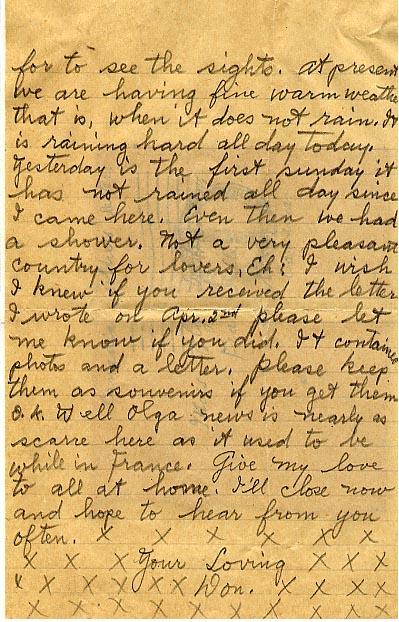 for to see the sights. At present
we are having fine warm weathe
that is, when it does not rain. It
is raining hard all day today.
Yesterday is the first sunday it
has not rained all day since
I came here. Even then we had
a shower. Not a very pleasant
country for lovers, Eh! I wish
I knew if you received the letter
I wrote on Apr. 2nd please let
me know if you did. It contained
photos and a letter. Please keep
them as souvenirs if you get them
O.K. Well Olga news is nearly as
scarse here as it used to be
while in France. Give my love
to all at home. I'll close now
and hope to hear from you
often. X X X X X X
X X X Your Loving X X X
X X X X X X Don. X X X X
X X X X X X X X X X